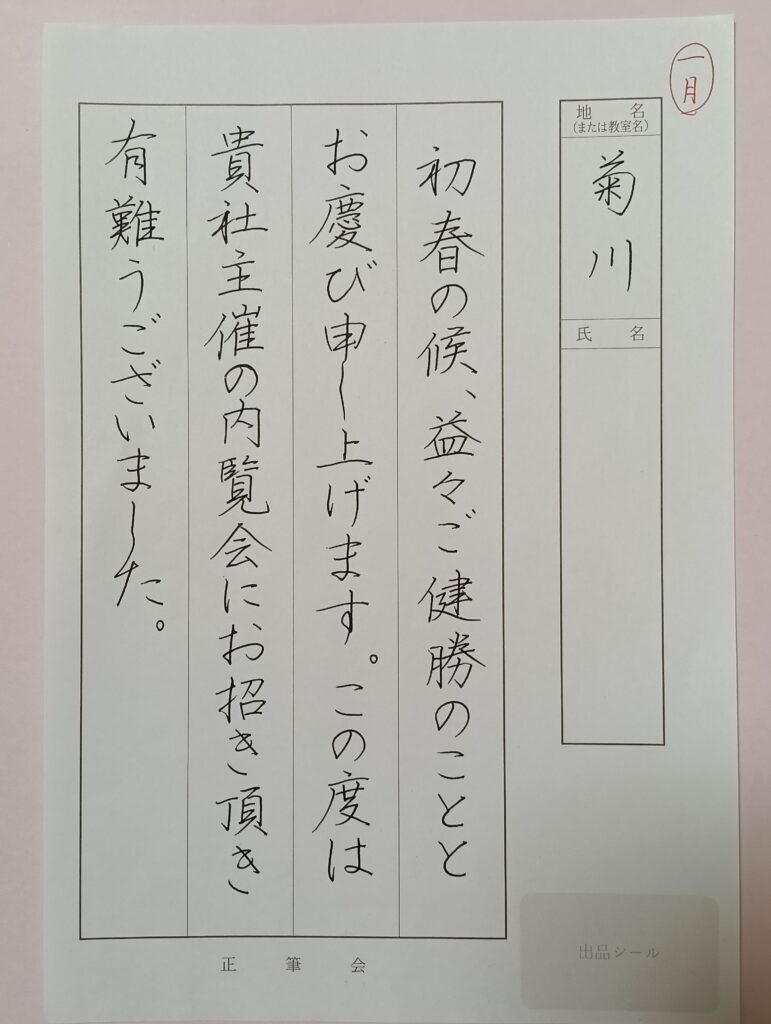 一月
地名
(または教室名)
菊川
氏名
初春の候、益々ご健勝のことと
お慶び申し上げます。この度は
貴社主催の内覧会にお招き頂き
有難うございました。
出品シール
正筆会